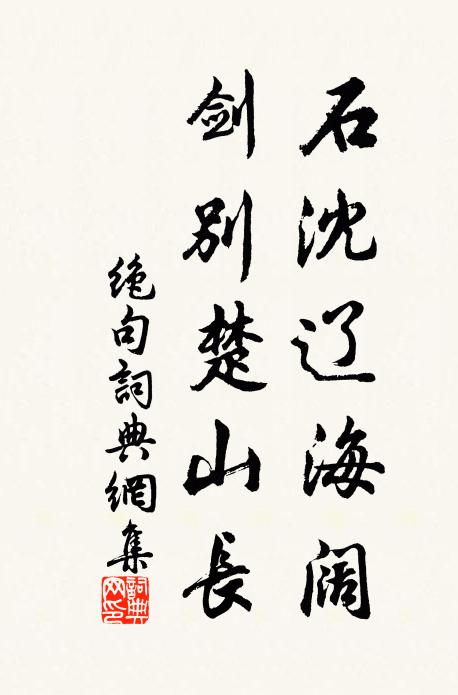 石沈辽海阔
剑别楚山長
绝句詞典網集
詞典網印